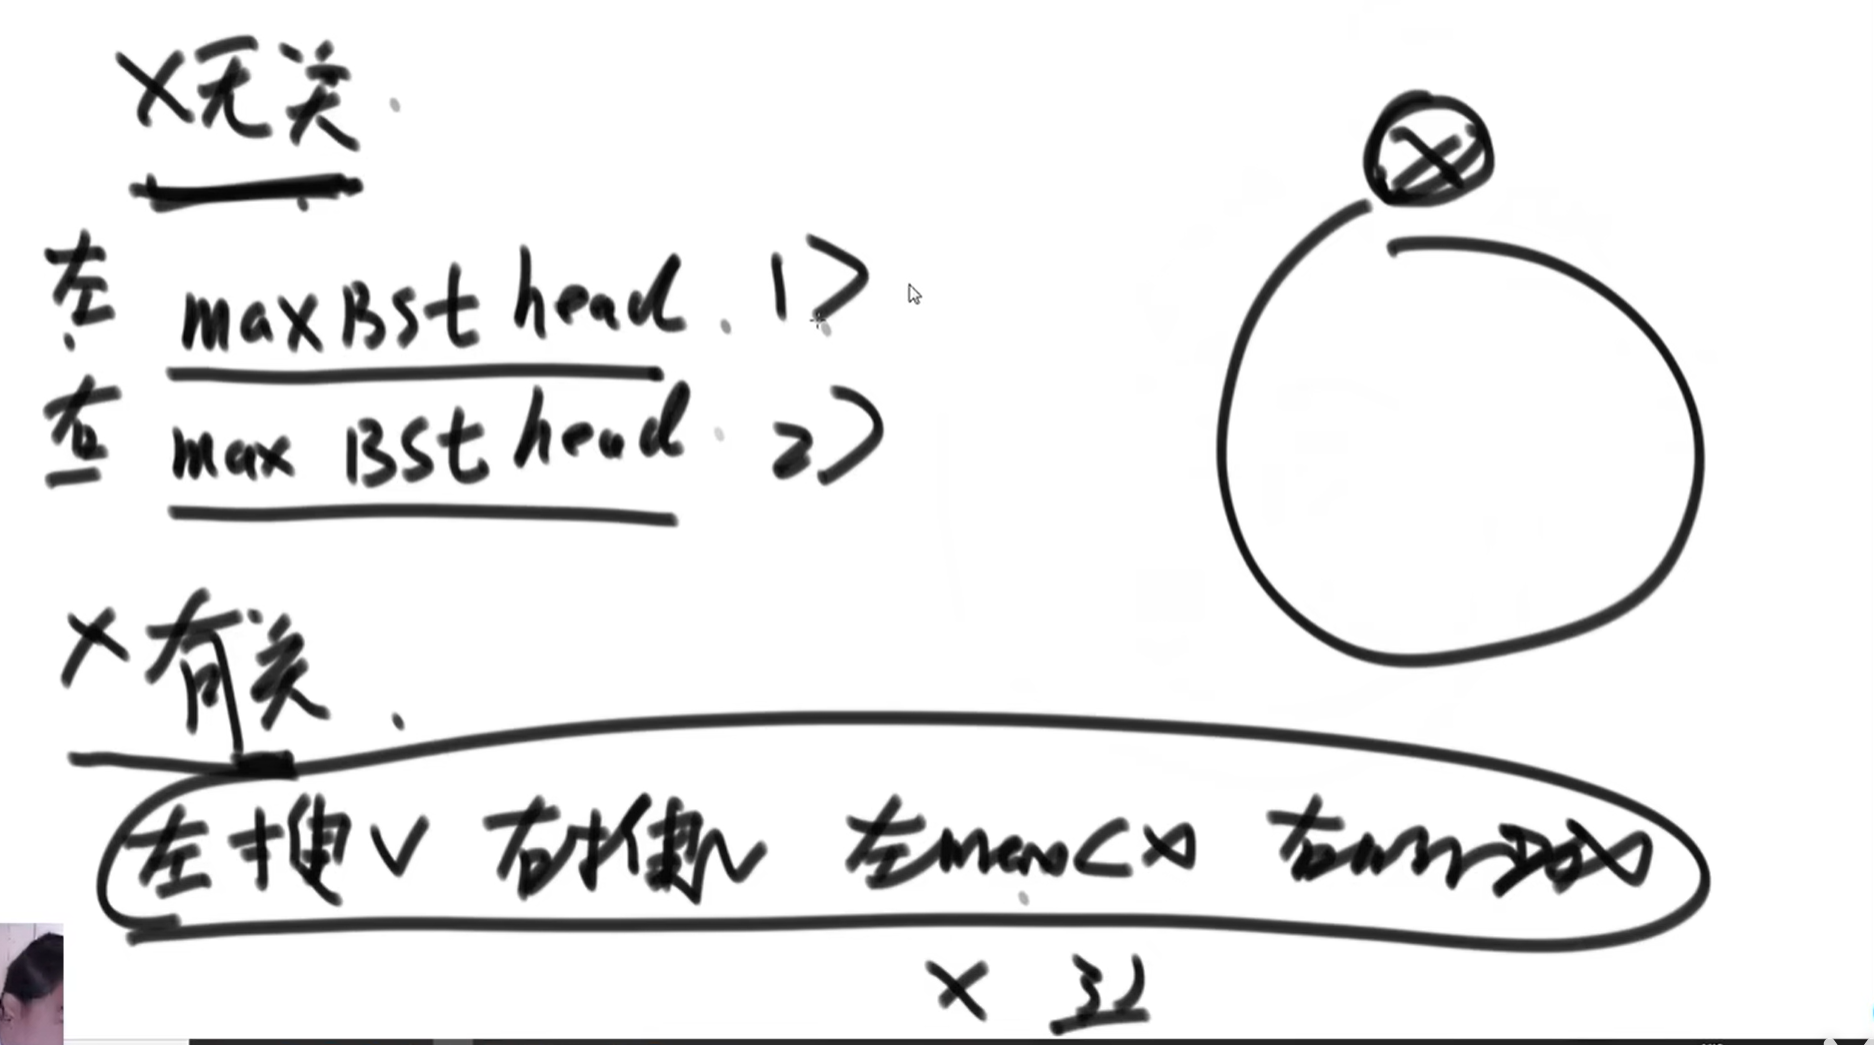 X无关
左 maxBSt head 1>
右 max BSt head 2>
X有关
左搜 右搜 左max<X 右min>X
X